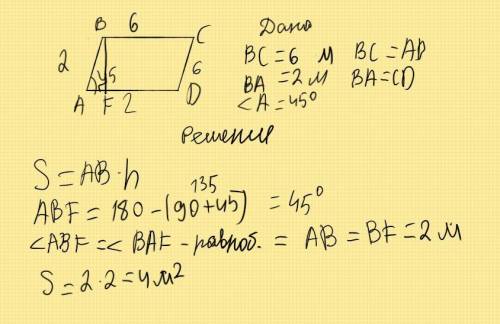 B 6 C
2 45 6
A F 2 D
Дано
BC=6 м BC=AD
BA=2м BA=CD
<A=45°
Решение
S=AB·h
135
ABF=180-(90+45)=45°
<ABF=<BAF-равноб.=AB=BF=2м
S=2·2=4м²